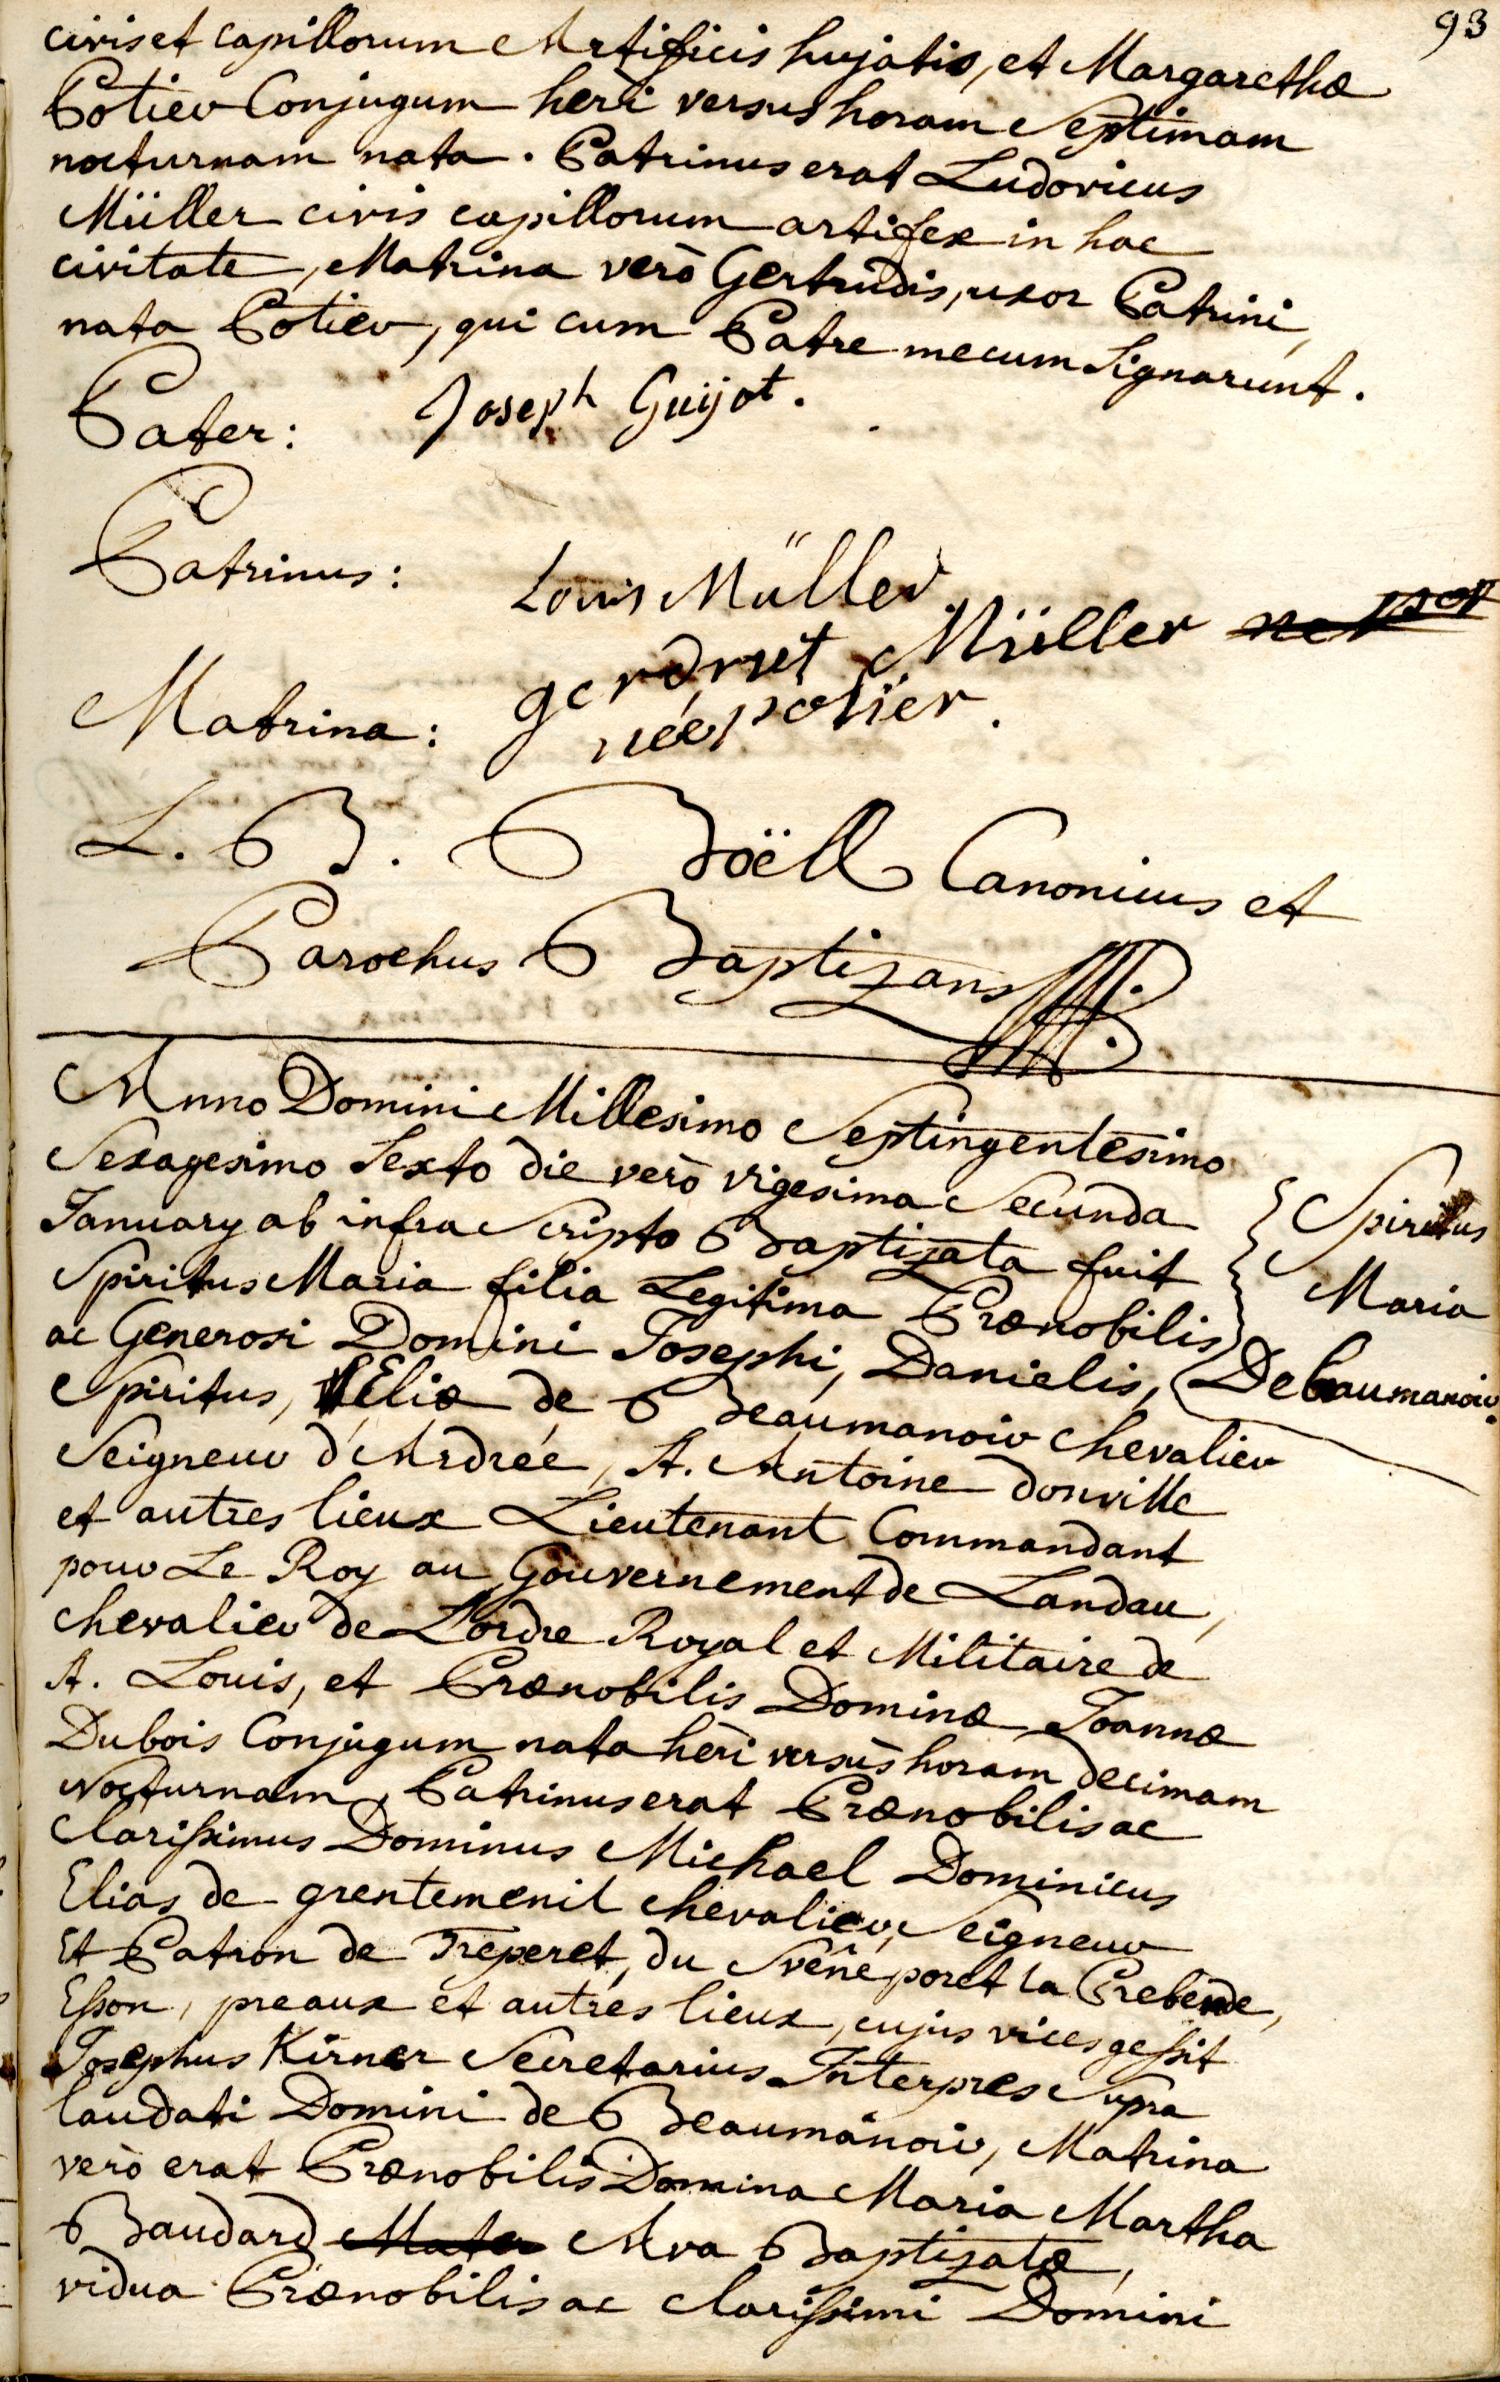 93
civis et capillorum Artificis hujatis, et Margarethæ
Potier Conjugum heri versus horam Septimam
nocturnam nata. Patrinus erat Ludovicus
Müller civis capillorum artifex in hac
civitate, Matrina verò Gertrudis, uxor Patrini,
nata Potier, qui cum Patre mecum Signarunt.
Pater: Joseph Guijot.
Patrinus: Louis Müller
Matrina: gerdrut Müller
née potier.
L. B. Boëll Canonicus et
Parochus Baptizans
Anno Domini Millesimo Septingentesimo
Sexagesimo Sexto die verò vigesima Secunda
January ab infra Scripto Baptizata fuit
Spiritus Maria filia Legitima Prænobilis
ac Generosi Domini Josephi, Danielis,
Spiritus, Eliæ de Beaumanoir chevalier
Seigneur d'Ardrée, St. Antoine donville
et autres lieux Lieutenant Commandant
pour Le Roy au Gouvernement de Landau,
chevalier de L'ordre Royal et Militaire de
St. Louis, et Prænobilis Dominæ Joannæ
Dubois Conjugum nata heri versus horam decimam
Nocturnam, Patrinus erat Prænobilis ac
Clarissimus Dominus Michael Dominicus
Elias de grentemenil chevalier, Seigneur
Et Patron de Treperet, du Svêne poret la Prebende,
Esson, preaux et autres lieux, cujus vices gessit
Josephus Kirner Secretarius Interpres Supra
laudati Domini de Beaumanoir, Matrina
verò erat Prænobilis Domina Maria Martha
Baudard Mater Ava Baptizatæ,
vidua Prænobilis ac Clarissimi Domini
Spiritus
Maria
De beaumanoir